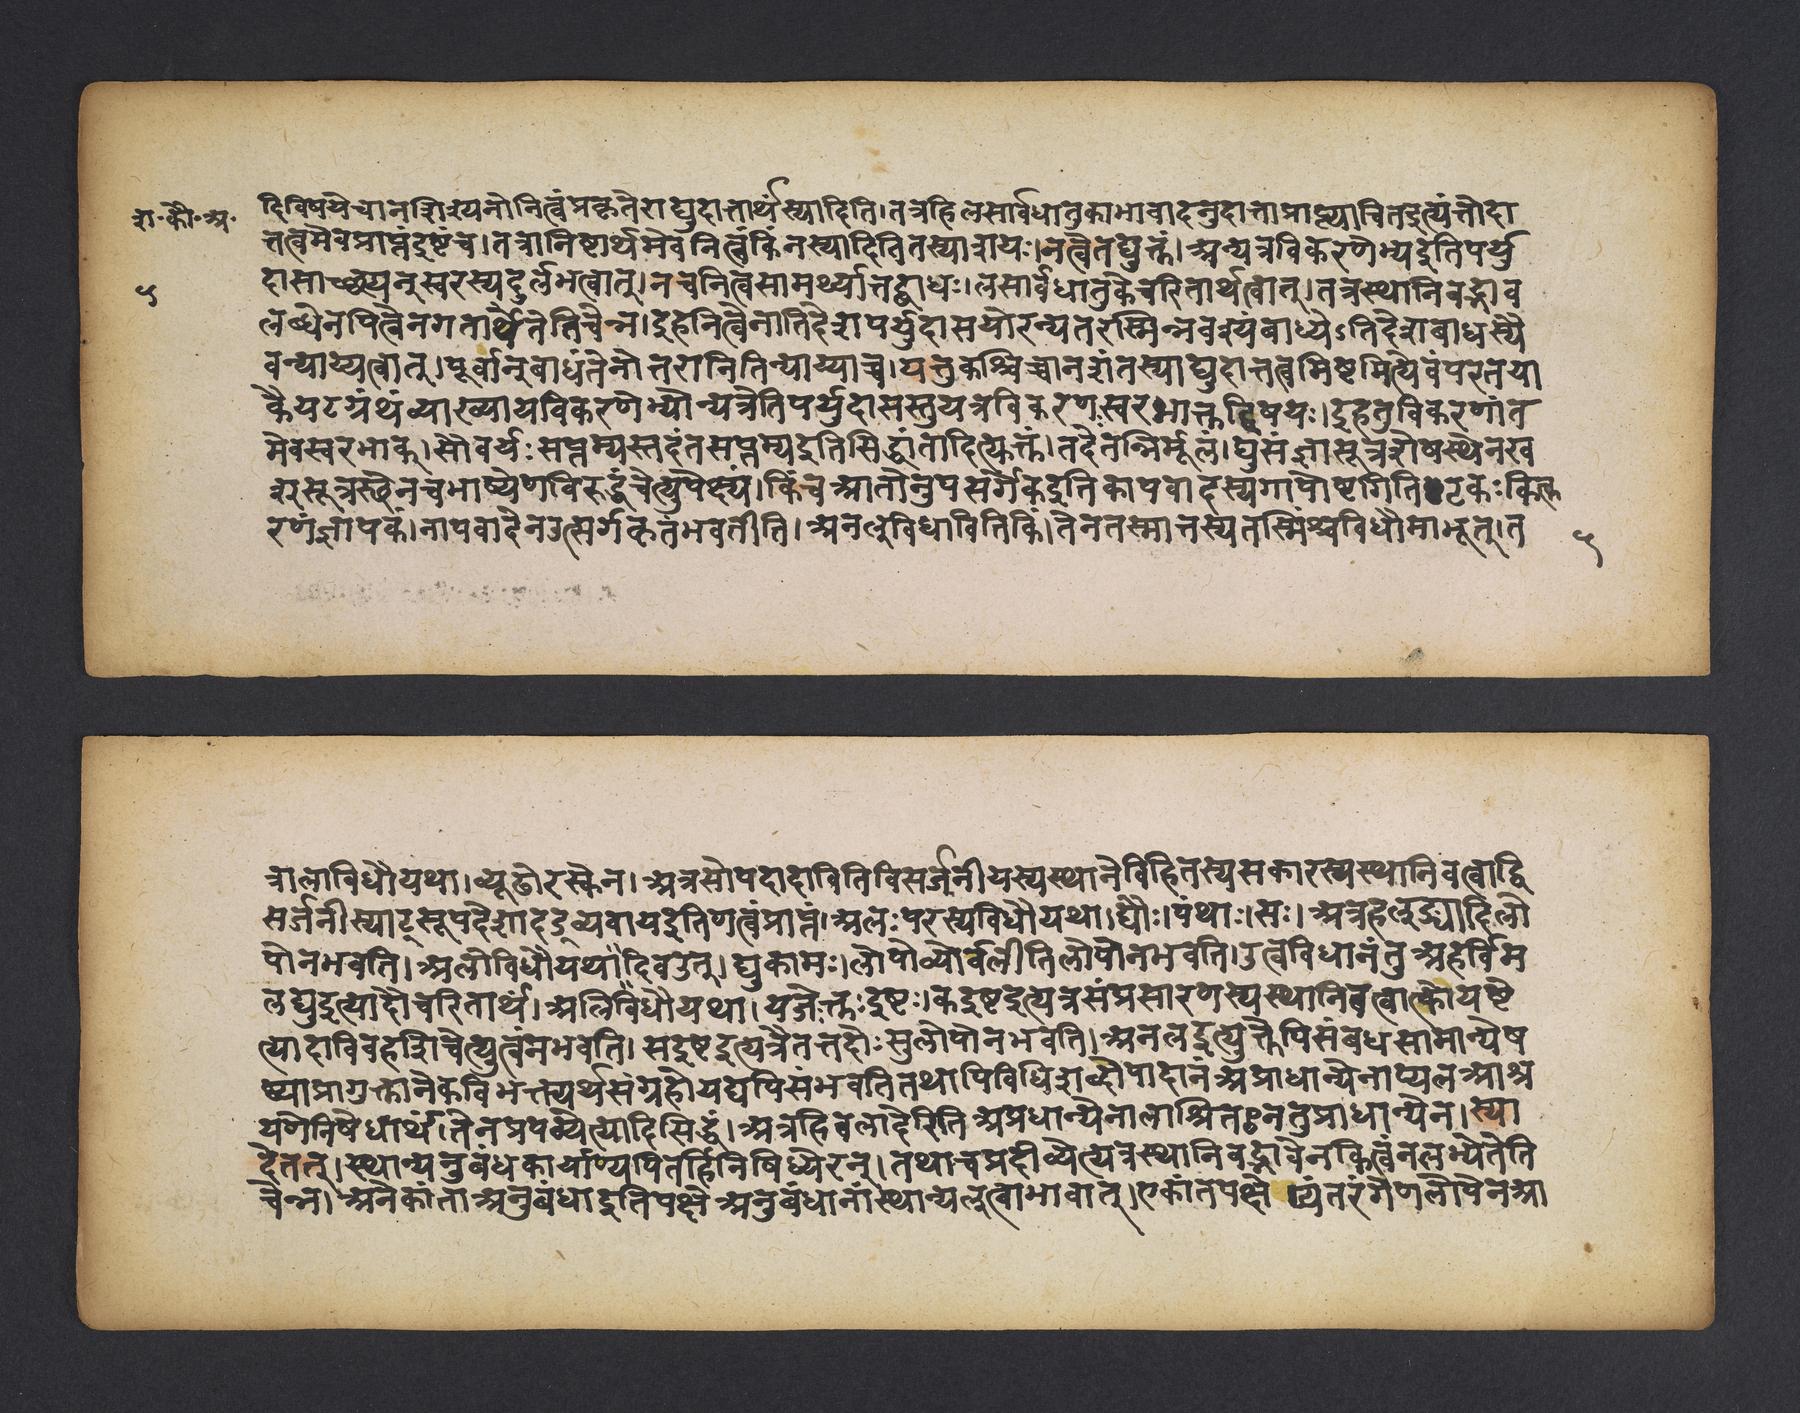 श·कौ·अ·
दिविषयेचानशिश्यनोनित्वंप्रकृतेराद्युदात्तार्थंस्यादिति।तत्रहिलसार्वधातुकाभावादनुदात्ताप्राप्त्याचितइत्यंतोदा
त्तत्वमेवप्राप्तंदृष्टंच।तत्रानिष्टार्थमेवनित्वंकिंनस्यादितितस्याशयः।नत्वेतद्युक्तं।अन्यत्रविकरणेभ्यइतिपर्यु
५
दासाच्छ्यनुस्वरस्यदुर्लभत्वात्।नचनित्वसामर्थ्यात्तद्बाधः।लसार्वधातुकेचरितार्थत्वात्।तत्रस्थानिवद्भाव
लब्धेनपित्वेनगतार्थतेतिचेन्न।इहनित्वेनातिदेशपर्युदासयोरन्यतरस्मिन्नवश्यंबाध्येऽतिदेशबाधस्यै
वन्याय्यत्वात्।पूर्वानुबाधंतेनोत्तरानितिन्यायाच्च।यत्तुकश्चिच्चानशंतस्याद्युदात्तत्वमिष्टमित्येवंपरतया
कैयटग्रंथंव्याख्यायविकरणेभ्योन्यत्रेतिपर्युदासस्तुयत्रविकरणःस्वरभाक्तद्विषयः।इहतुविकरणांत
मेवस्वरभाक्।सौवर्यःसप्तम्यस्तदंतसप्तम्यइतिसिद्धांतादित्युक्तं।तदेतन्निर्मूलं।घुसंज्ञासूत्रशेषस्थेनस्व
रसूत्रस्थेनचभाष्येणविरुद्धंचेत्युपेक्ष्यं।किंचआतोनुपसर्गेकइतिकापवादस्यगापोष्टगितिटकःकित्क
रणंज्ञापकं।नापवादेनउत्सर्गकृतंभवतीति।अनल्विधावितिकिं।तेनतस्मात्तस्यतस्मिंश्चविधौमाभूत्।त
५
त्रालाविधौयथा।व्यूढोरस्केन।अत्रसोपदादावितिविसर्जनीयस्यस्थानेविहितस्यसकारस्यस्थानिवत्वाद्वि
सर्जनीस्याट्सूपदेशादड्व्यवायइतिणत्वंप्राप्तं।अलःपरस्यविधौयथा।द्यौः।पंथाः।सः।अत्रहल्ङ्यादिलो
पोनभवति।अलोविधौयथा॥दिवउत्।द्युकामः।लोपोव्योर्वलीतिलोपोनभवति।उत्वविधानंतुअहर्विम
लद्युइत्यादौचरितार्थं।अलिविधौयथा।यजेःक्तःइष्टः।कइष्टइत्यत्रसंप्रसारणस्यस्थानिवत्वात्कोयष्टे
त्यादाविवहशिचेत्युत्वंनभवति।सइष्टइत्यत्रैतत्तदोःसुलोपोनभवति।अनलइत्युक्तेपिसंबंधसामान्येष
ष्ठ्याप्रागुक्तानेकविभक्त्यर्थसंग्रहोयद्यपिसंभवतितथापिविधिशब्दोपादानंअप्राधान्येनाप्यलआश्र
यणेनिषेधार्थं।तेनप्रपठ्येत्यादिसिद्धं।अत्रहिवलादेरितिअप्रधान्येनालाश्रितःनतुप्राधान्येन।स्या
देतत्।स्थान्यनुबंधकार्याण्यपितर्हिनिषिध्येरन्।तथाचप्रदीव्येत्यत्रस्थानिवद्भावेनकित्वंनलभ्येतेति
चेन्न।अनेकांताअनुबंधाइतिपक्षेअनुबंधानांस्थान्यल्त्वाभावात्।एकांतपक्षेप्यंतरंगेणलोपेनआ